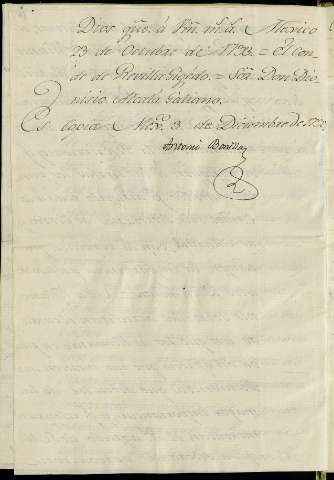 Dios gũe. á Vm. m.s a.s Mexico
23 de Octubre de 1793. = El con-
de de Revilla Gigedo. = Sor. Don Dio-
nisio Alcalá Galiano.
Es copia. Mex.co 3 de Diciembre de 1793
Antonio Bonilla